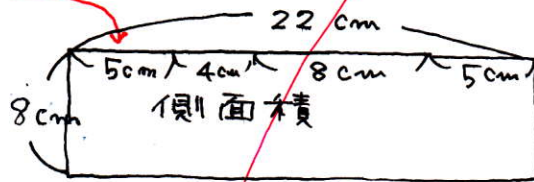 22 cm
5cm 4cm 8cm 5cm
8cm
側面積